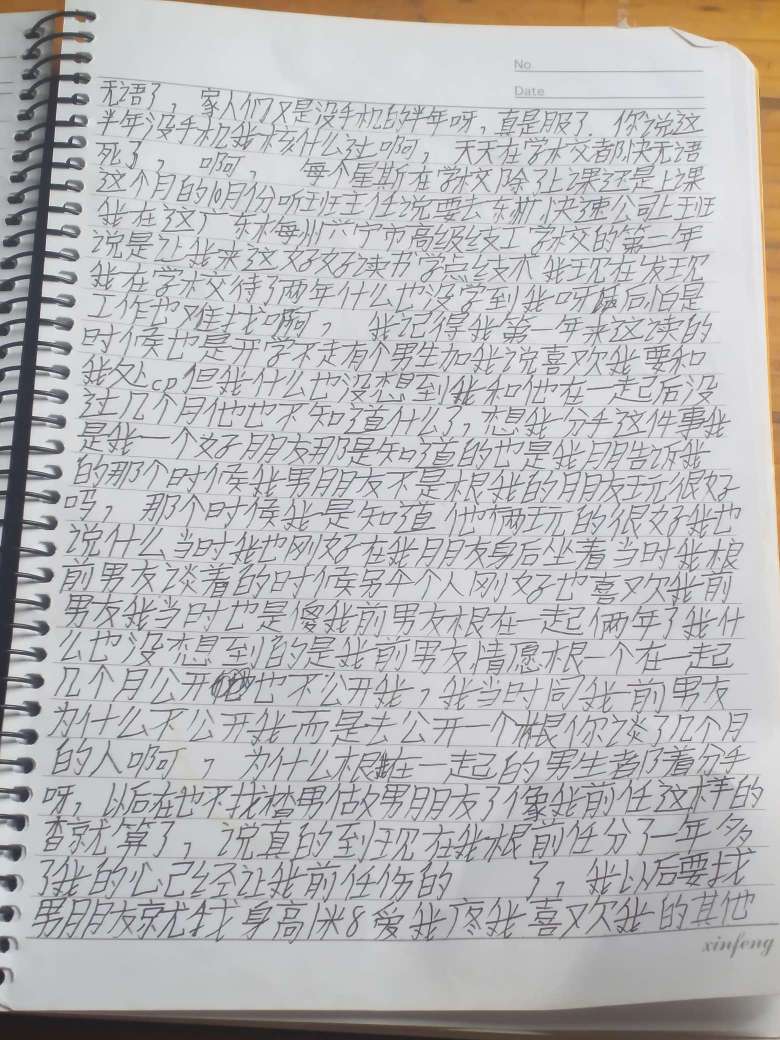 No
Date
无语了，家人们又是没手机的半年呀，真是服了．你说这
半年没手机我核什么过啊，天天在学校都快无语
死了，啊，每个星斯在学校除了上课还是上课
这个月的10月份听班主任说要去东莞快速公司上班
我在这广东梅州兴宁市高级技工学校的第二年
说是让我来这好好读书学点技术我现在发现
我在学校待了两年什么也没学到我呀最后怕是
工作也难找啊，我记得我第一年来这读的
时候也是开学不走有个男生加我说喜欢我要和
我处cp但我什么也没想到我和他在一起后没
过几个月他也不知道什么了，想我分手这件事我
是我一个好朋友那是知道的也是我朋告诉我
的那个时候我男朋友不是根我的朋友玩很好
吗，那个时候我是知道他俩玩的很好我也
说什么当时我也刚好在我朋友身后坐着当时我根
前男友谈着的时候另个个人刚好也喜欢我前
男友我当时也是傻我前男友根在一起俩年了我什
么也没想到的是我前男友情愿根一个在一起
几个月公开也不公开我，我当时问我前男友
为什么不公开我而是去公开一个根你谈了几个月
的人啊，为什么根我在一起的男生者仍着分手
呀，以后在也不找楂男做男朋友了像我前任这样的
杳就算了，说真的到现在我根前任分了一年多
了我的心已经让我前任伤的 了，我以后要找
男朋友就找身高1米8爱我疼我喜欢我的其他
xinfeng